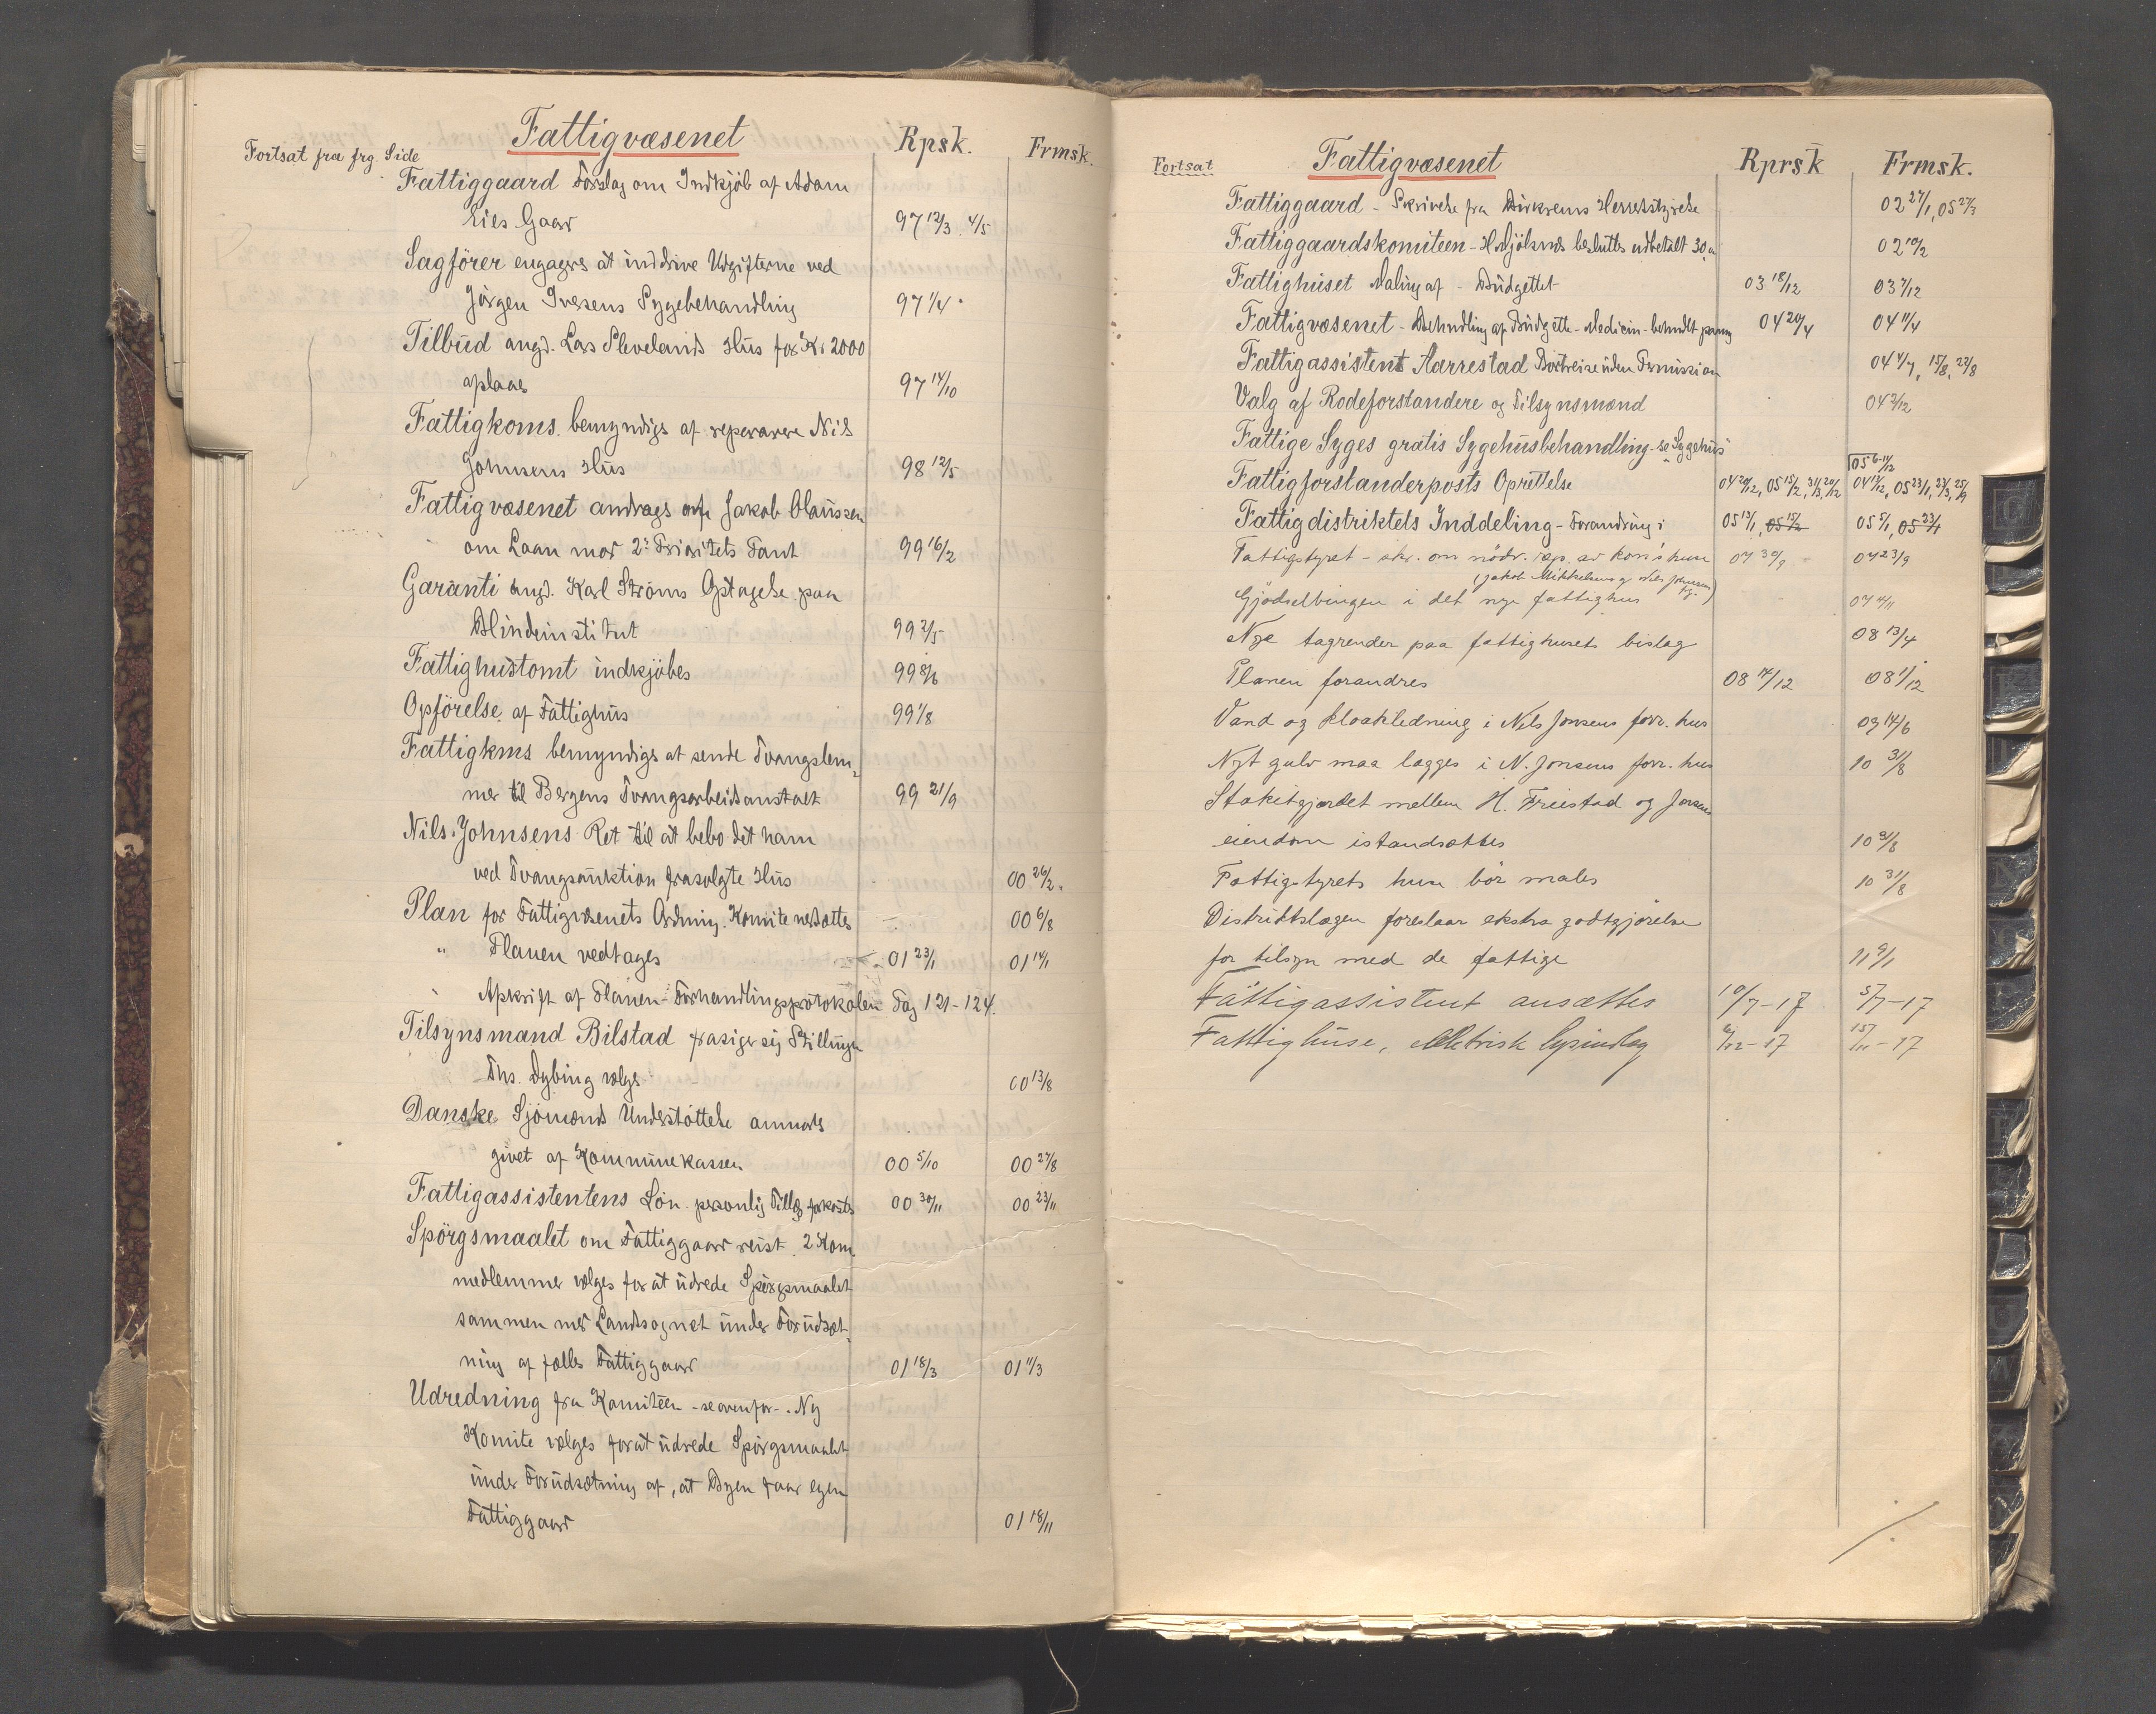 Fortsat fra frg. Side
Fattigvæsenet
Rpsk.
Frmsk.
Fattiggaard Forslag om Indkjöb af Adam
Lies Gaard
97 12/3. 4/5
Sagförer engageres at inddrive Udgifterne ved
Jörgen Iversens Sygebehandling
97 1/4
Tilbud angd. Lars Plevelands Hus for Kr 2000
afslaaes
97 14/10
Fattigkoms. bemyndigs af reparere Nils
Johnsens Hus
98 12/5
Fattigvæsenet andrages af Jakob Olaussen
om Laan mod 2den Prioritets Pant
99 16/2
Garanti angd. Karl Ströms Optagelse paa
Blindeinstitut
99 2/5
Fattighustomt indkjöbes
99 8/6
Opförelse af Fattighus
99 1/8
Fattigkms bemyndiges at sende Tvangslem-
mer til Bergens Tvangsarbeidsanstalt
99 21/9
Nils Johnsens Ret til at bebo det ham
ved Tvangsauktion frasolgte Hus
00 26/2.
Plan for Fattigvæsenets Ordning. Komite nedsættes
00 6/8
" Planen vedtages
01 23/1
01 14/1
" Afskrift af Planen - Forhandlingsprotokolen Pag 121-124.
Tilsynsmand Bilstad frasiger sig Stillingen
Ths. Dybing vælges
00 13/8
Danske Sjömænds Understöttelse anmodes
givet af Kommunekassen
00 5/10
00 27/8
Fattigassistentens Lön. personlig Tillæg forkastes
00 30/11
00 23/11
Spörgsmaalet om Fattiggaard reist. 2 Kom
medlemmer vælges for at udrede Spörgsmaalet
sammen med Landsognet under Forudsæt-
ning af fælles Fattiggaard
01 18/3
01 11/3
Udredning fra Komiteen - se ovenfor -. Ny
Komite vælges for at udrede Spörgsmaalet
under Forudsætning af, at Byen faar egen
Fattiggaard
01 18/11
Fortsat
Fattigvæsenet
Rprsk
Frmsk.
Fattiggaard - Skrivelse fra Birkrems Herredsstyrelse
02 27/1, 05 27/3
Fattiggaardskomiteen - H. Mjölsnes besluttes udbetalt 30
02 10/2
Fattighuset Maling af - Budgettet
03 18/12
03 7/12
Fattigvæsenet - Behndling af Budgette - Medicin - behndlt
04 20/4
04 11/4
Fattigassistent Aarrestad Bortreise uden Permission
04 4/7, 15/8, 23/8
Valg af Rodeforstandere og Tilsynsmænd
04 2/12
Fattige Syges gratis Sygehusbehandling - se Sygehus
05 6-11/12
Fattigforstanderposts Oprettelse
04 20/12, 05 15/2, 31/3, 20/12
04 12/12, 05 23/1, 27/3, 25/9
Fattigdistriktets Inddeling - Forandring i
05 13/1, 05 15/2
05 5/1, 05 23/1
Fattigstyret - skr. om nödv. rep. av kom's huse
07 30/9
07 23/9
(Jakob Mikkelsens og Nils Johnsens)
Gjödselbingen i det nye fattighus
07 4/11
Nye tagrender paa fattighusets bislag
08 13/4
Planen forandres
08 14/12
08 1/12
Vand og kloakledning i Nils Jonsens forr. hus
09 14/6
Nyt gulv maa lægges i N. Jonsens forr. hus
10 31/8
Stakitgjærdet mellem H. Freestad og Jonsens
eiendom istandsættes
10 9/8
Fattigstyrets huse bör males
10 31/8
Distriktslægen foreslaar ekstra godtgjörelse
for tilsyn med de fattige
11 9/1
Fattigassistent ansættes
10/7-17
5/7-17
Fattighuse, elektrisk lysindlæg
6/12-17
15/11-17